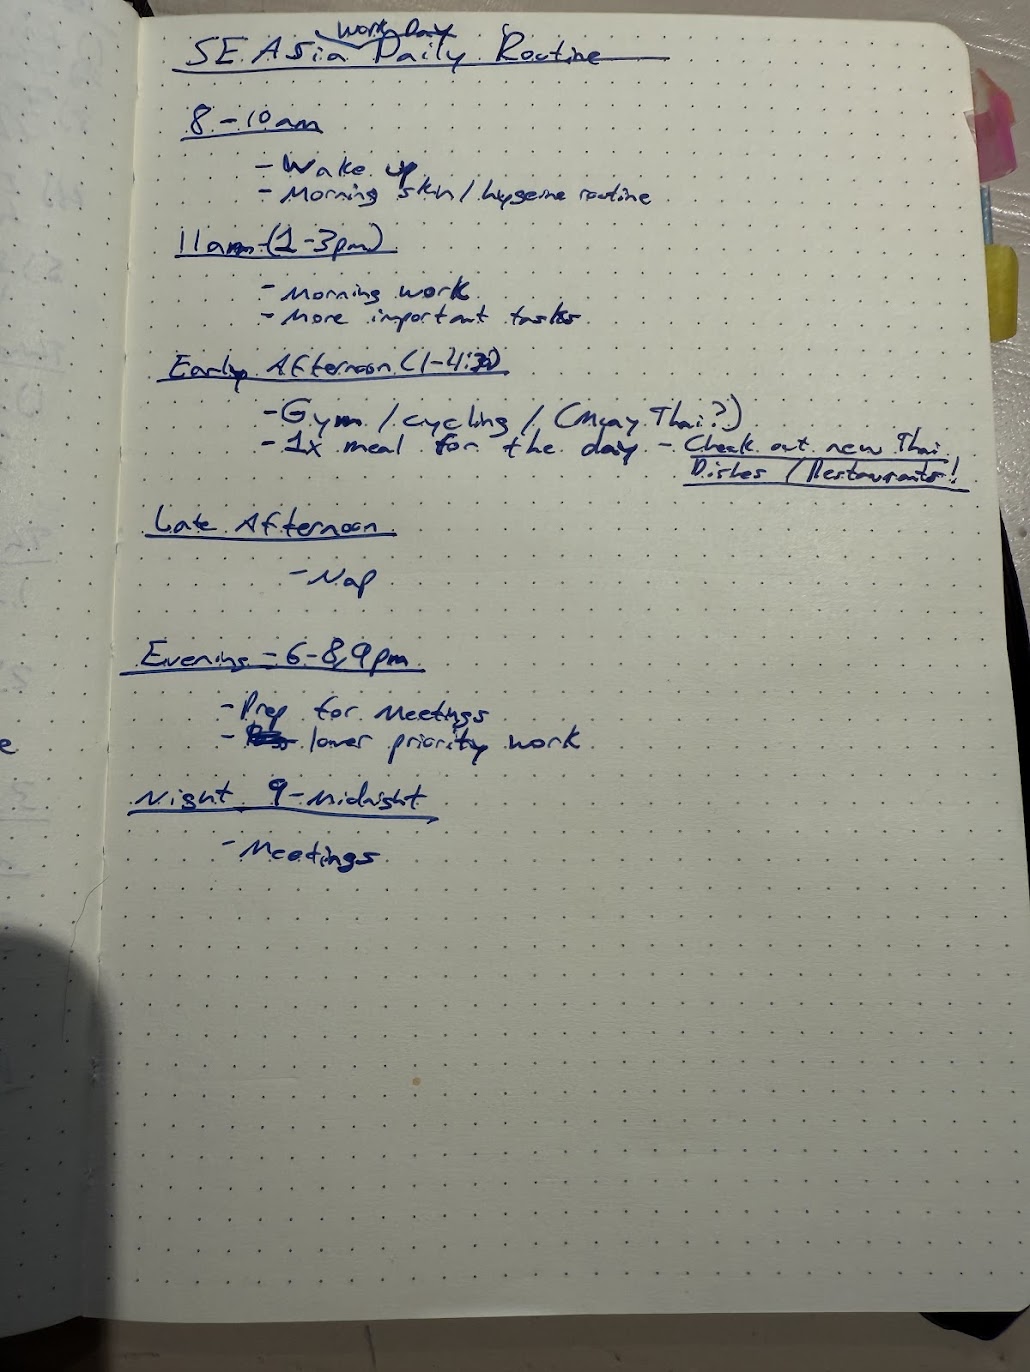 Work Day
SE Asia Daily Routine
8-10am
- Wake up
- Morning skin/hygeine routine
11am-(1-3pm)
- Morning work
- More important tasks
Early Afternoon (1-4:30)
- Gym / cycling / (Muay Thai?)
- 1x meal for the day - Check out new Thai
Dishes / Restaurants!
Late Afternoon
- Nap
Evening - 6-8,9pm
- Prep for Meetings
- lower priority work
Night 9-Midnight
- Meetings
e